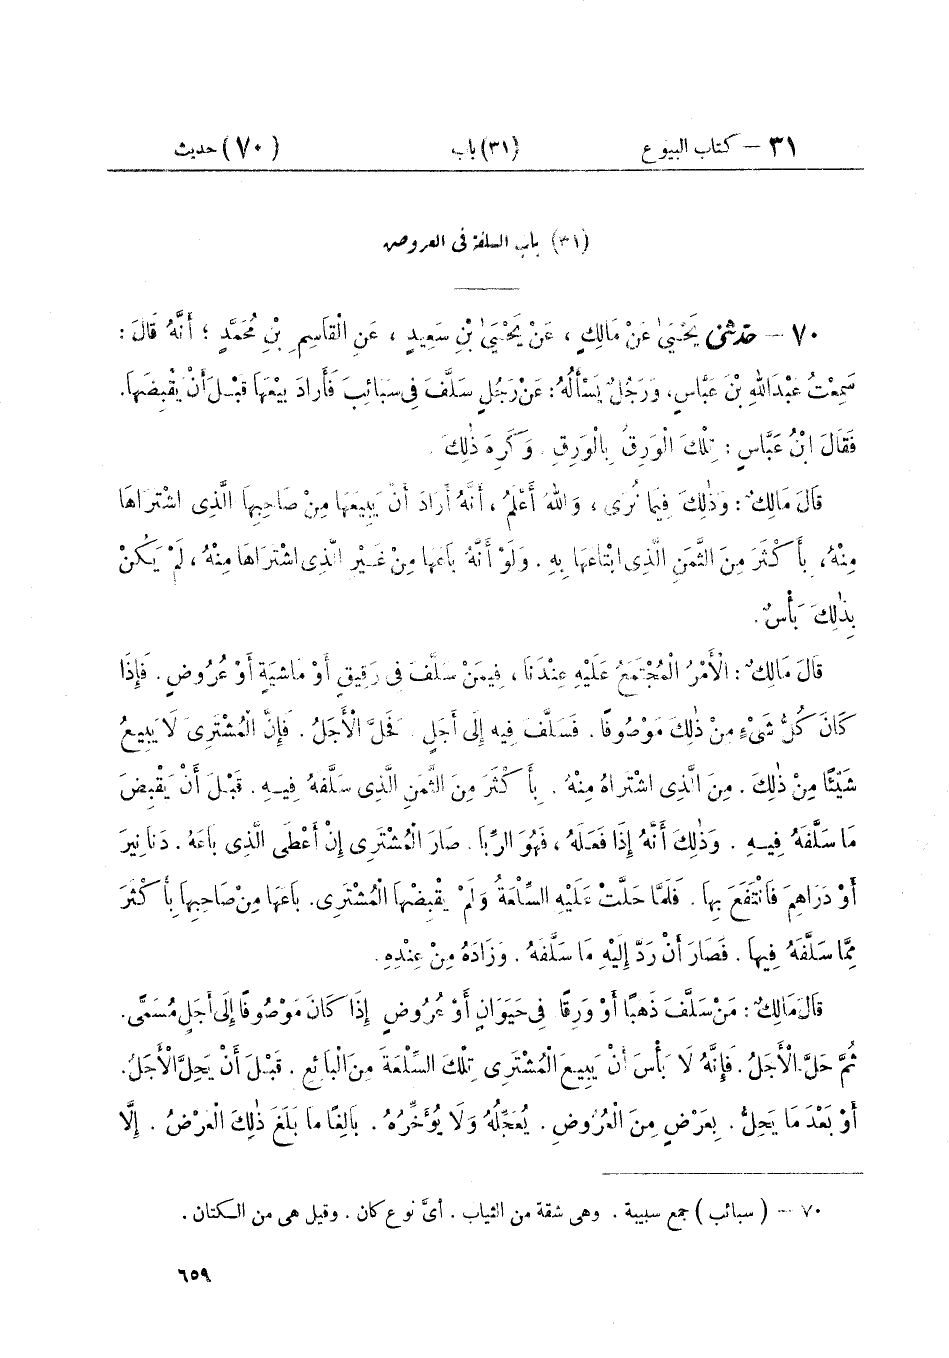 ٣١ – كتاب البيوع (٣١) باب (٧٠) حديث
(٣١) باب السلفة فى العروض
٧٠ – حَدَّثَنِى يَحْيَىٰ عَنْ مَالِكٍ ، عَنْ يَحْيَىٰ بْنِ سَعِيدٍ ، عَنِ الْقَاسِمِ بْنِ مُحَمَّدٍ ؛ أَنَّهُ قَالَ :
سَمِعْتُ عَبْدَ اللهِ بْنَ عَبَّاسٍ، وَرَجُلٌ يَسْأَلُهُ: عَنْ رَجُلٍ سَلَّفَ فِى سَبَائِبَ فَأَرَادَ بَيْعَهَا قَبْلَ أَنْ يَقْبِضَهَا.
فَقَالَ ابْنُ عَبَّاسٍ : تِلْكَ الْوَرِقُ بِالْوَرِقِ . وَكَرِهَ ذٰلِكَ .
قَالَ مَالِكٌ : وَذٰلِكَ فِيمَا نُرَى ، وَاللهُ أَعْلَمُ ، أَنَّهُ أَرَادَ أَنْ يَبِيعَهَا مِنْ صَاحِبِهَا الَّذِى اشْتَرَاهَا
مِنْهُ، بِأَكْثَرَ مِنَ الثَّمَنِ الَّذِى ابْتَاعَهَا بِهِ . وَلَوْ أَنَّهُ بَاعَهَا مِنْ غَيْرِ الَّذِى اشْتَرَاهَا مِنْهُ ، لَمْ يَكُنْ
بِذٰلِكَ بَأْسٌ .
قَالَ مَالِكٌ : الْأَمْرُ الْمُجْتَمَعُ عَلَيْهِ عِنْدَنَا ، فِيمَنْ سَلَّفَ فِى رَقِيقٍ أَوْ مَاشِيَةٍ أَوْ عُرُوضٍ . فَإِذَا
كَانَ كُلُّ شَىْءٍ مِنْ ذٰلِكَ مَوْصُوفًا . فَسَلَّفَ فِيهِ إِلَى أَجَلٍ . فَحَلَّ الْأَجَلُ . فَإِنَّ الْمُشْتَرِىَ لَا يَبِيعُ
شَيْئًا مِنْ ذٰلِكَ . مِنَ الَّذِى اشْتَرَاهُ مِنْهُ . بِأَكْثَرَ مِنَ الثَّمَنِ الَّذِى سَلَّفَهُ فِيهِ . قَبْلَ أَنْ يَقْبِضَ
مَا سَلَّفَهُ فِيهِ . وَذٰلِكَ أَنَّهُ إِذَا فَعَلَهُ ، فَهُوَ الرِّبَا . صَارَ الْمُشْتَرِى إِنْ أَعْطَى الَّذِى بَاعَهُ . دَنَانِيرَ
أَوْ دَرَاهِمَ فَانْتَفَعَ بِهَا . فَلَمَّا حَلَّتْ عَلَيْهِ السِّلْعَةُ وَلَمْ يَقْبِضْهَا الْمُشْتَرِى. بَاعَهَا مِنْ صَاحِبِهَا بِأَكْثَرَ
مِمَّا سَلَّفَهُ فِيهَا . فَصَارَ أَنْ رَدَّ إِلَيْهِ مَا سَلَّفَهُ . وَزَادَهُ مِنْ عِنْدِهِ .
قَالَ مَالِكٌ : مَنْ سَلَّفَ ذَهَبًا أَوْ وَرِقًا فِى حَيَوَانٍ أَوْ عُرُوضٍ إِذَا كَانَ مَوْصُوفًا إِلَى أَجَلٍ مُسَمًّى.
ثُمَّ حَلَّ الْأَجَلُ . فَإِنَّهُ لَا بَأْسَ أَنْ يَبِيعَ الْمُشْتَرِى تِلْكَ السِّلْعَةَ مِنَ الْبَائِعِ . قَبْلَ أَنْ يَحِلَّ الْأَجَلُ.
أَوْ بَعْدَ مَا يَحِلُّ . بِعَرْضٍ مِنَ الْعُرُوضِ . يُعَجِّلُهُ وَلَا يُؤَخِّرُهُ . بَالِغًا مَا بَلَغَ ذٰلِكَ الْعَرْضُ . إِلَّا
٧٠ – ( سبائب ) جمع سبيبة . وهى شقة من الثياب . أىَّ نوع كان . وقيل هى من الكتان .
٦٥٩